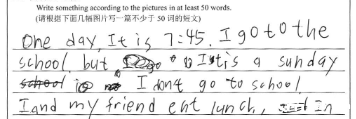 Write something according to the pictures in at least 50 words.
(请根据下面几幅图片写一篇不少于 50 词的短文)
One day, It is 7:45. I go to the
school but It is a sunday
I dont go to school
I and my friend eht lunch, In